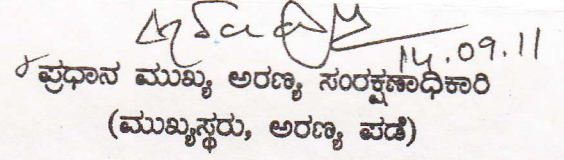 14.09.11
ಪ್ರಧಾನ ಮುಖ್ಯ ಅರಣ್ಯ ಸಂರಕ್ಷಣಾಧಿಕಾರಿ
(ಮುಖ್ಯಸ್ಥರು, ಅರಣ್ಯ ಪಡೆ)